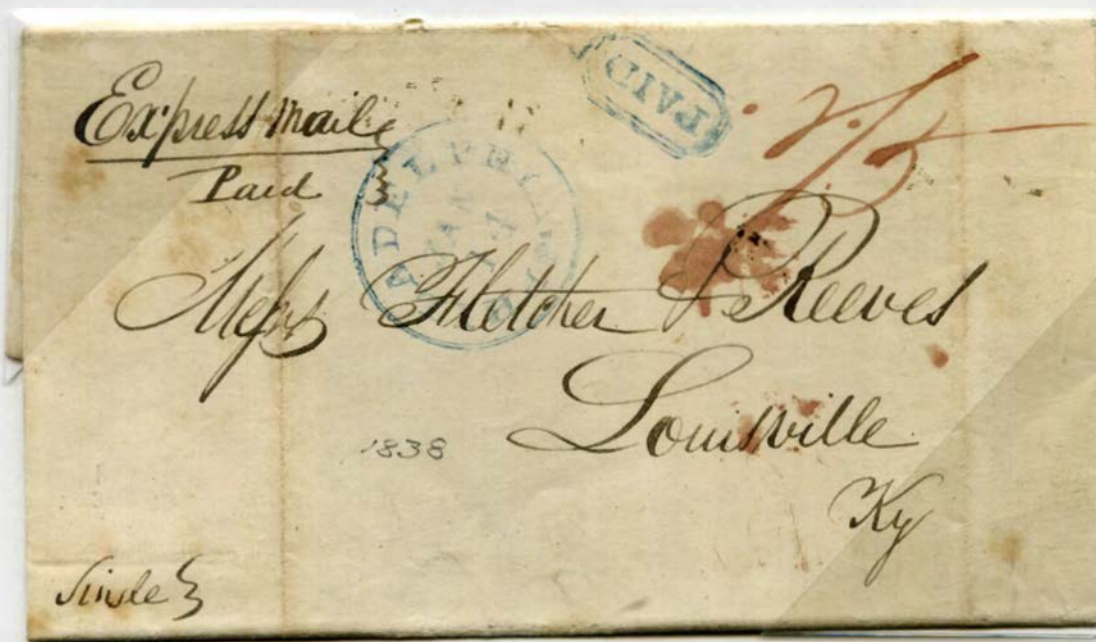 Express Mail
Paid
PAID
ADELPHI
JAN
Messrs Fletcher & Reeves
Louisville
Ky
1838
Single